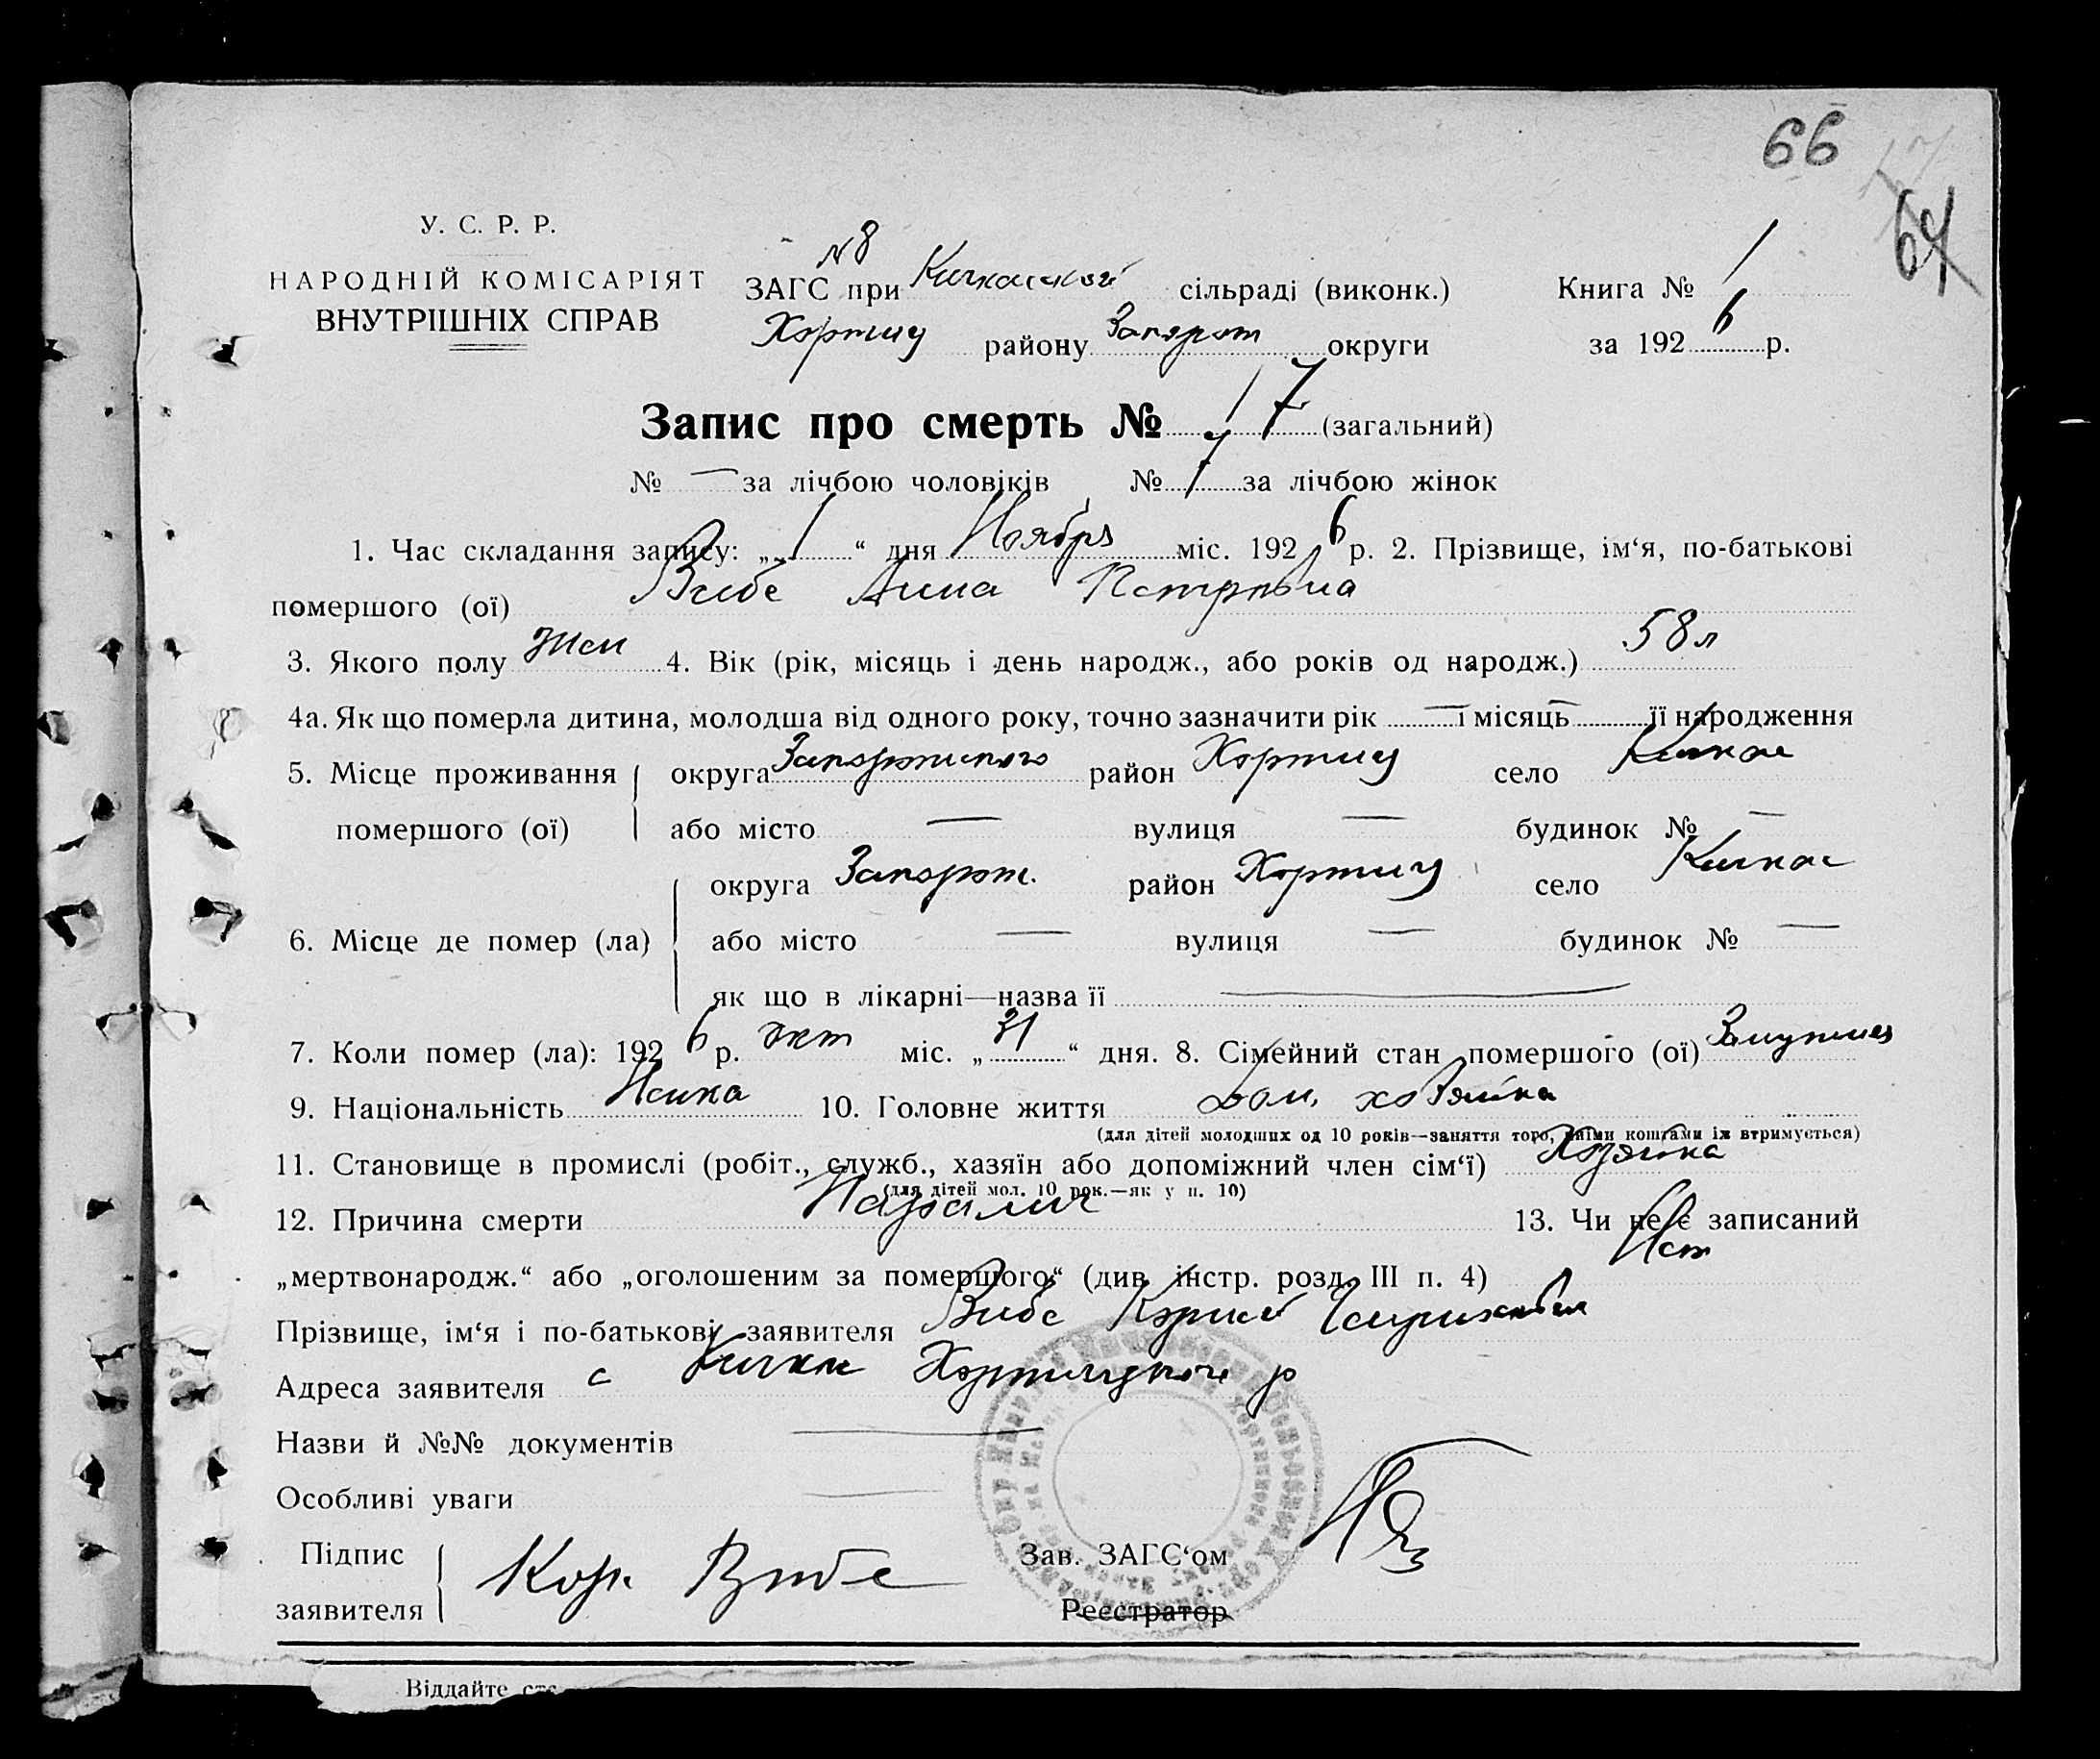 66
64
У. С. Р. Р.
НАРОДНІЙ КОМІСАРІЯТ
ВНУТРІШНІХ СПРАВ
№ 8
ЗАГС при Кичкасской сільраді (виконк.)
Хортиц району Запорож округи
Книга № 1
за 1926 р.
Запис про смерть № 17 (загальний)
№ — за лічбою чоловіків № 7 за лічбою жінок
1. Час складання запису: „1“ дня Ноября міс. 1926 р. 2. Прізвище, ім‘я, по-батькові
помершого (ої) Вибе Анна Петровна
3. Якого полу Жен 4. Вік (рік, місяць і день народж., або років од народж.) 58 л
4а. Як що померла дитина, молодша від одного року, точно зазначити рік — і місяць — її народження
5. Місце проживання помершого (ої) округа Запорожского район Хортиц село Кичкас
або місто — вулиця — будинок № —
6. Місце де помер (ла) округа Запорож. район Хортиц село Кичкас
або місто — вулиця — будинок № —
як що в лікарні—назва її —
7. Коли помер (ла): 1926 р. окт міс. „31“ дня. 8. Сімейний стан помершого (ої) Замужняя
9. Національність Немка 10. Головне життя Дом. хозяйка
(для дітей молодших од 10 років—заняття того, чиїми коштами їх втримується)
11. Становище в промислі (робіт., служб., хазяїн або допоміжний член сім‘ї) Хозяйка
(для дітей мол. 10 рок.—як у п. 10)
12. Причина смерти Паралич 13. Чи не є записаний
„мертвонародж.“ або „оголошеним за помершого“ (див. інстр. розд. III п. 4) Нет
Прізвище, ім‘я і по-батькові заявителя Вибе Корней Генрихович
Адреса заявителя с Кичкас Хортицкого р
Назви й №№ документів —
Особливі уваги —
Підпис заявителя Кор. Вибе
Зав. ЗАГС‘ом
Реєстратор
Віддайте